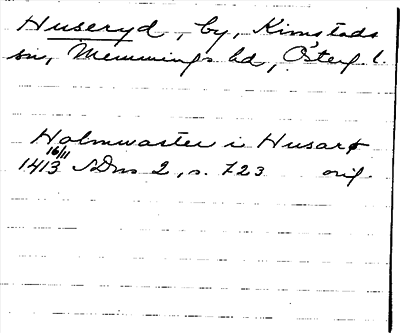 Huseryd, by, Kimstads
sn, Memmings hd, Österg l.
Holmwaster i Husarø
16/11
1413 SDns 2, s. 723 orig.